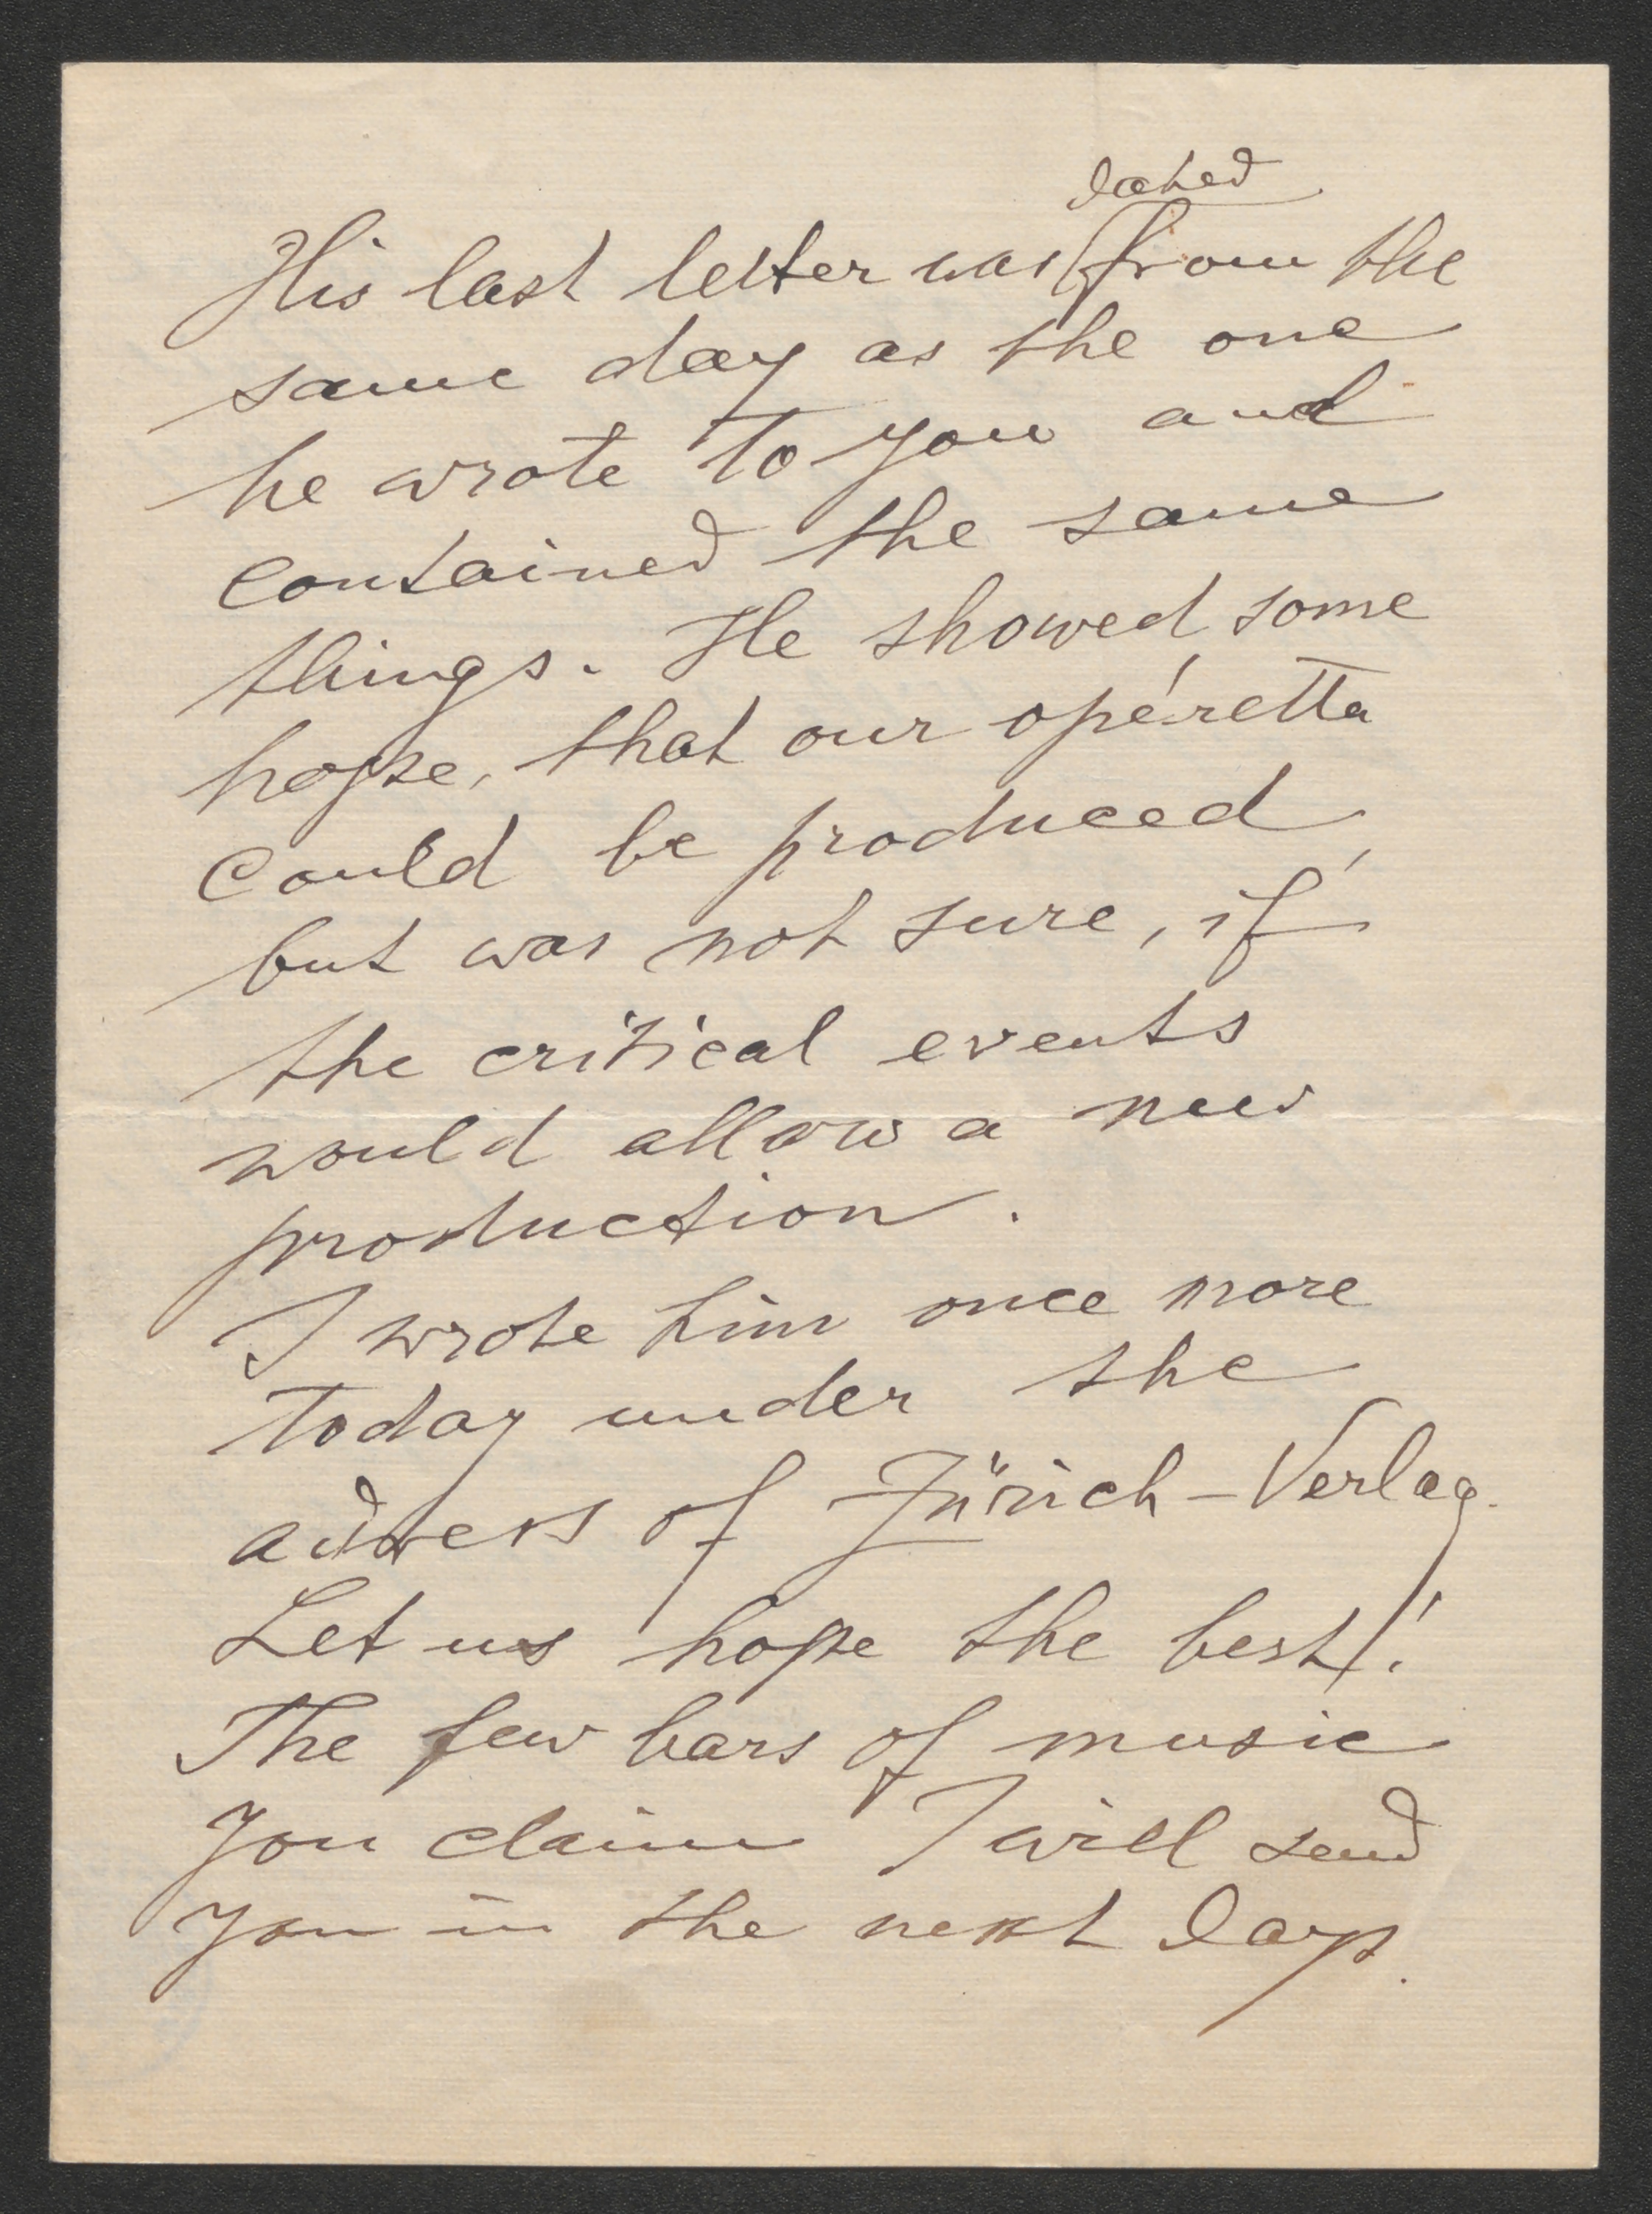 dated
His last letter was from the
same day as the one
he wrote to you and
contained the same
things. He showed some
hope, that our opéretta
could be produced,
but was not sure, if
the critical events
would allow a new
production.
I wrote him once more
today under the
adress of Zürich-Verlag.
Let us hope the best!
The few bars of music
you claim I will send
you in the next days.